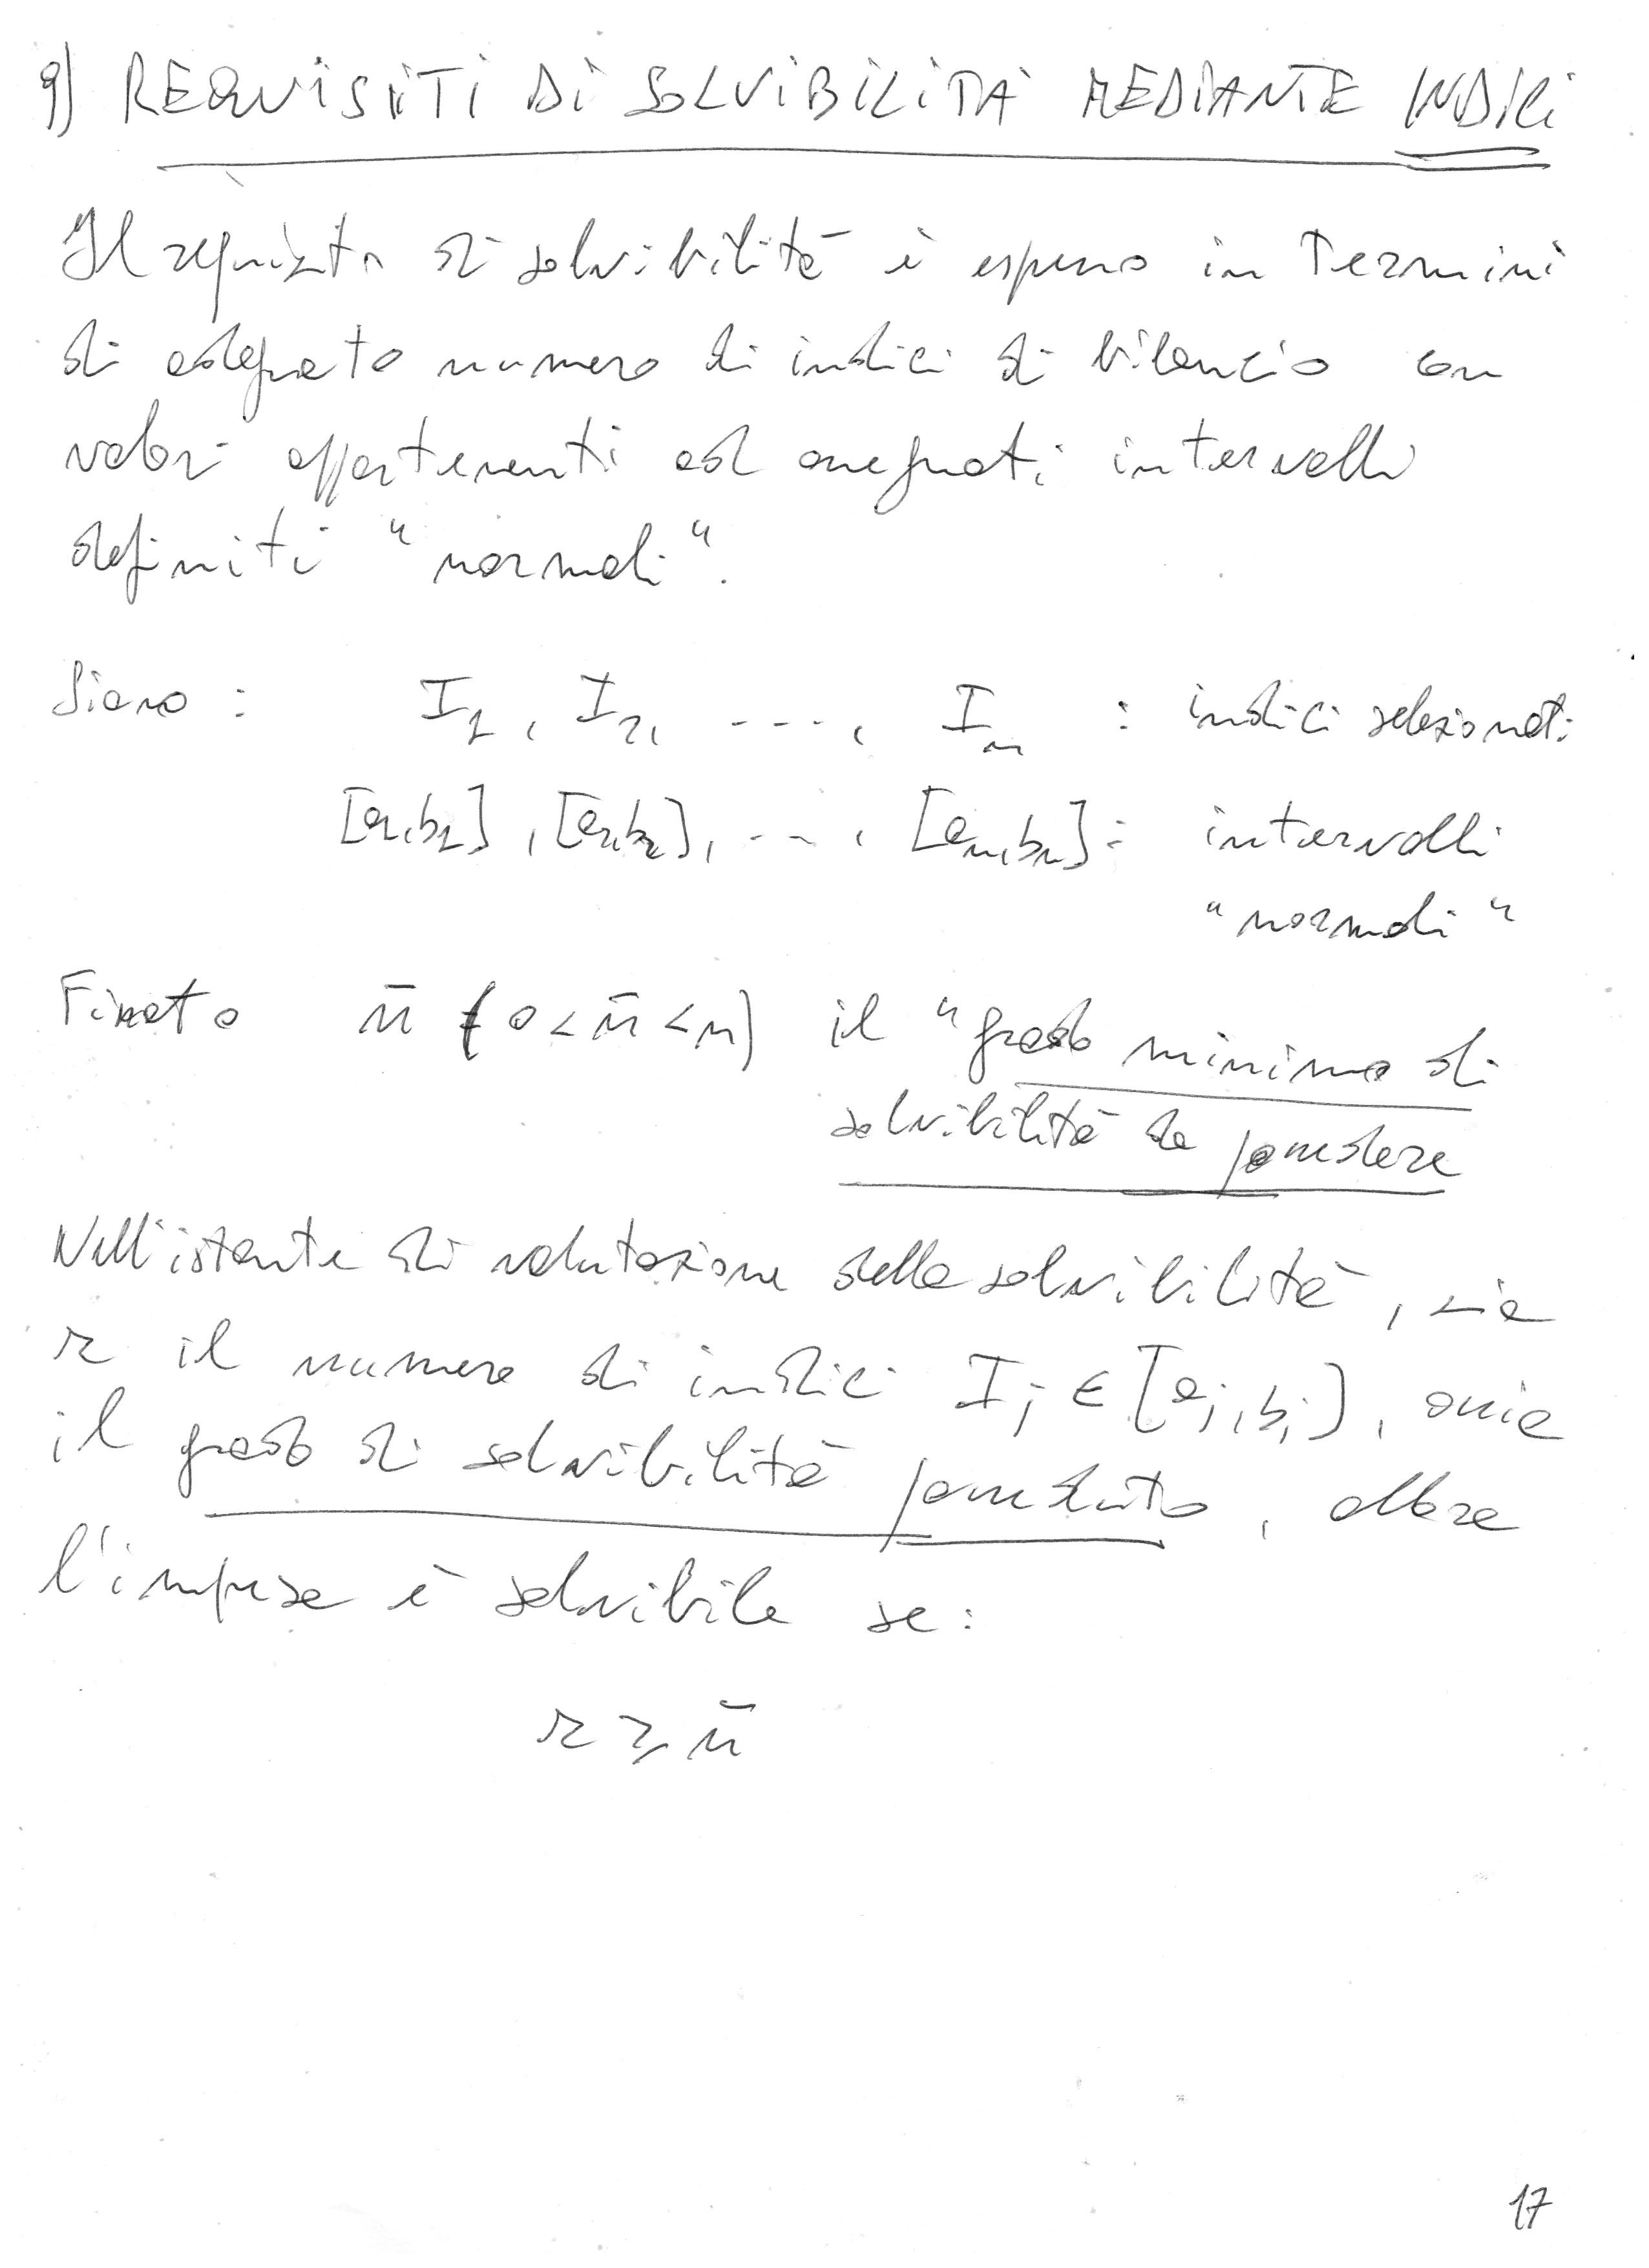 9) REQUISITI DI SOLVIBILITÀ MEDIANTE INDICI
Il requisito di solvibilità è espresso in Termini
di adeguato numero di indici di bilancio con
valori appartenenti ad assegnati intervalli
definiti "normali".
Siano : I1, I2, ---, In : indici selezionati
[a1,b1], [a2,b2], ---, [an,bn] : intervalli
"normali"
Fissato n̄ (0 < n̄ < n) il "grado minimo di
solvibilità da possedere
Nell'istante di valutazione della solvibilità, sia
r il numero di indici Ij ∈ [aj, bj], ossia
il grado di solvibilità posseduto, allora
l'impresa è solvibile se:
r ≥ n̄
17